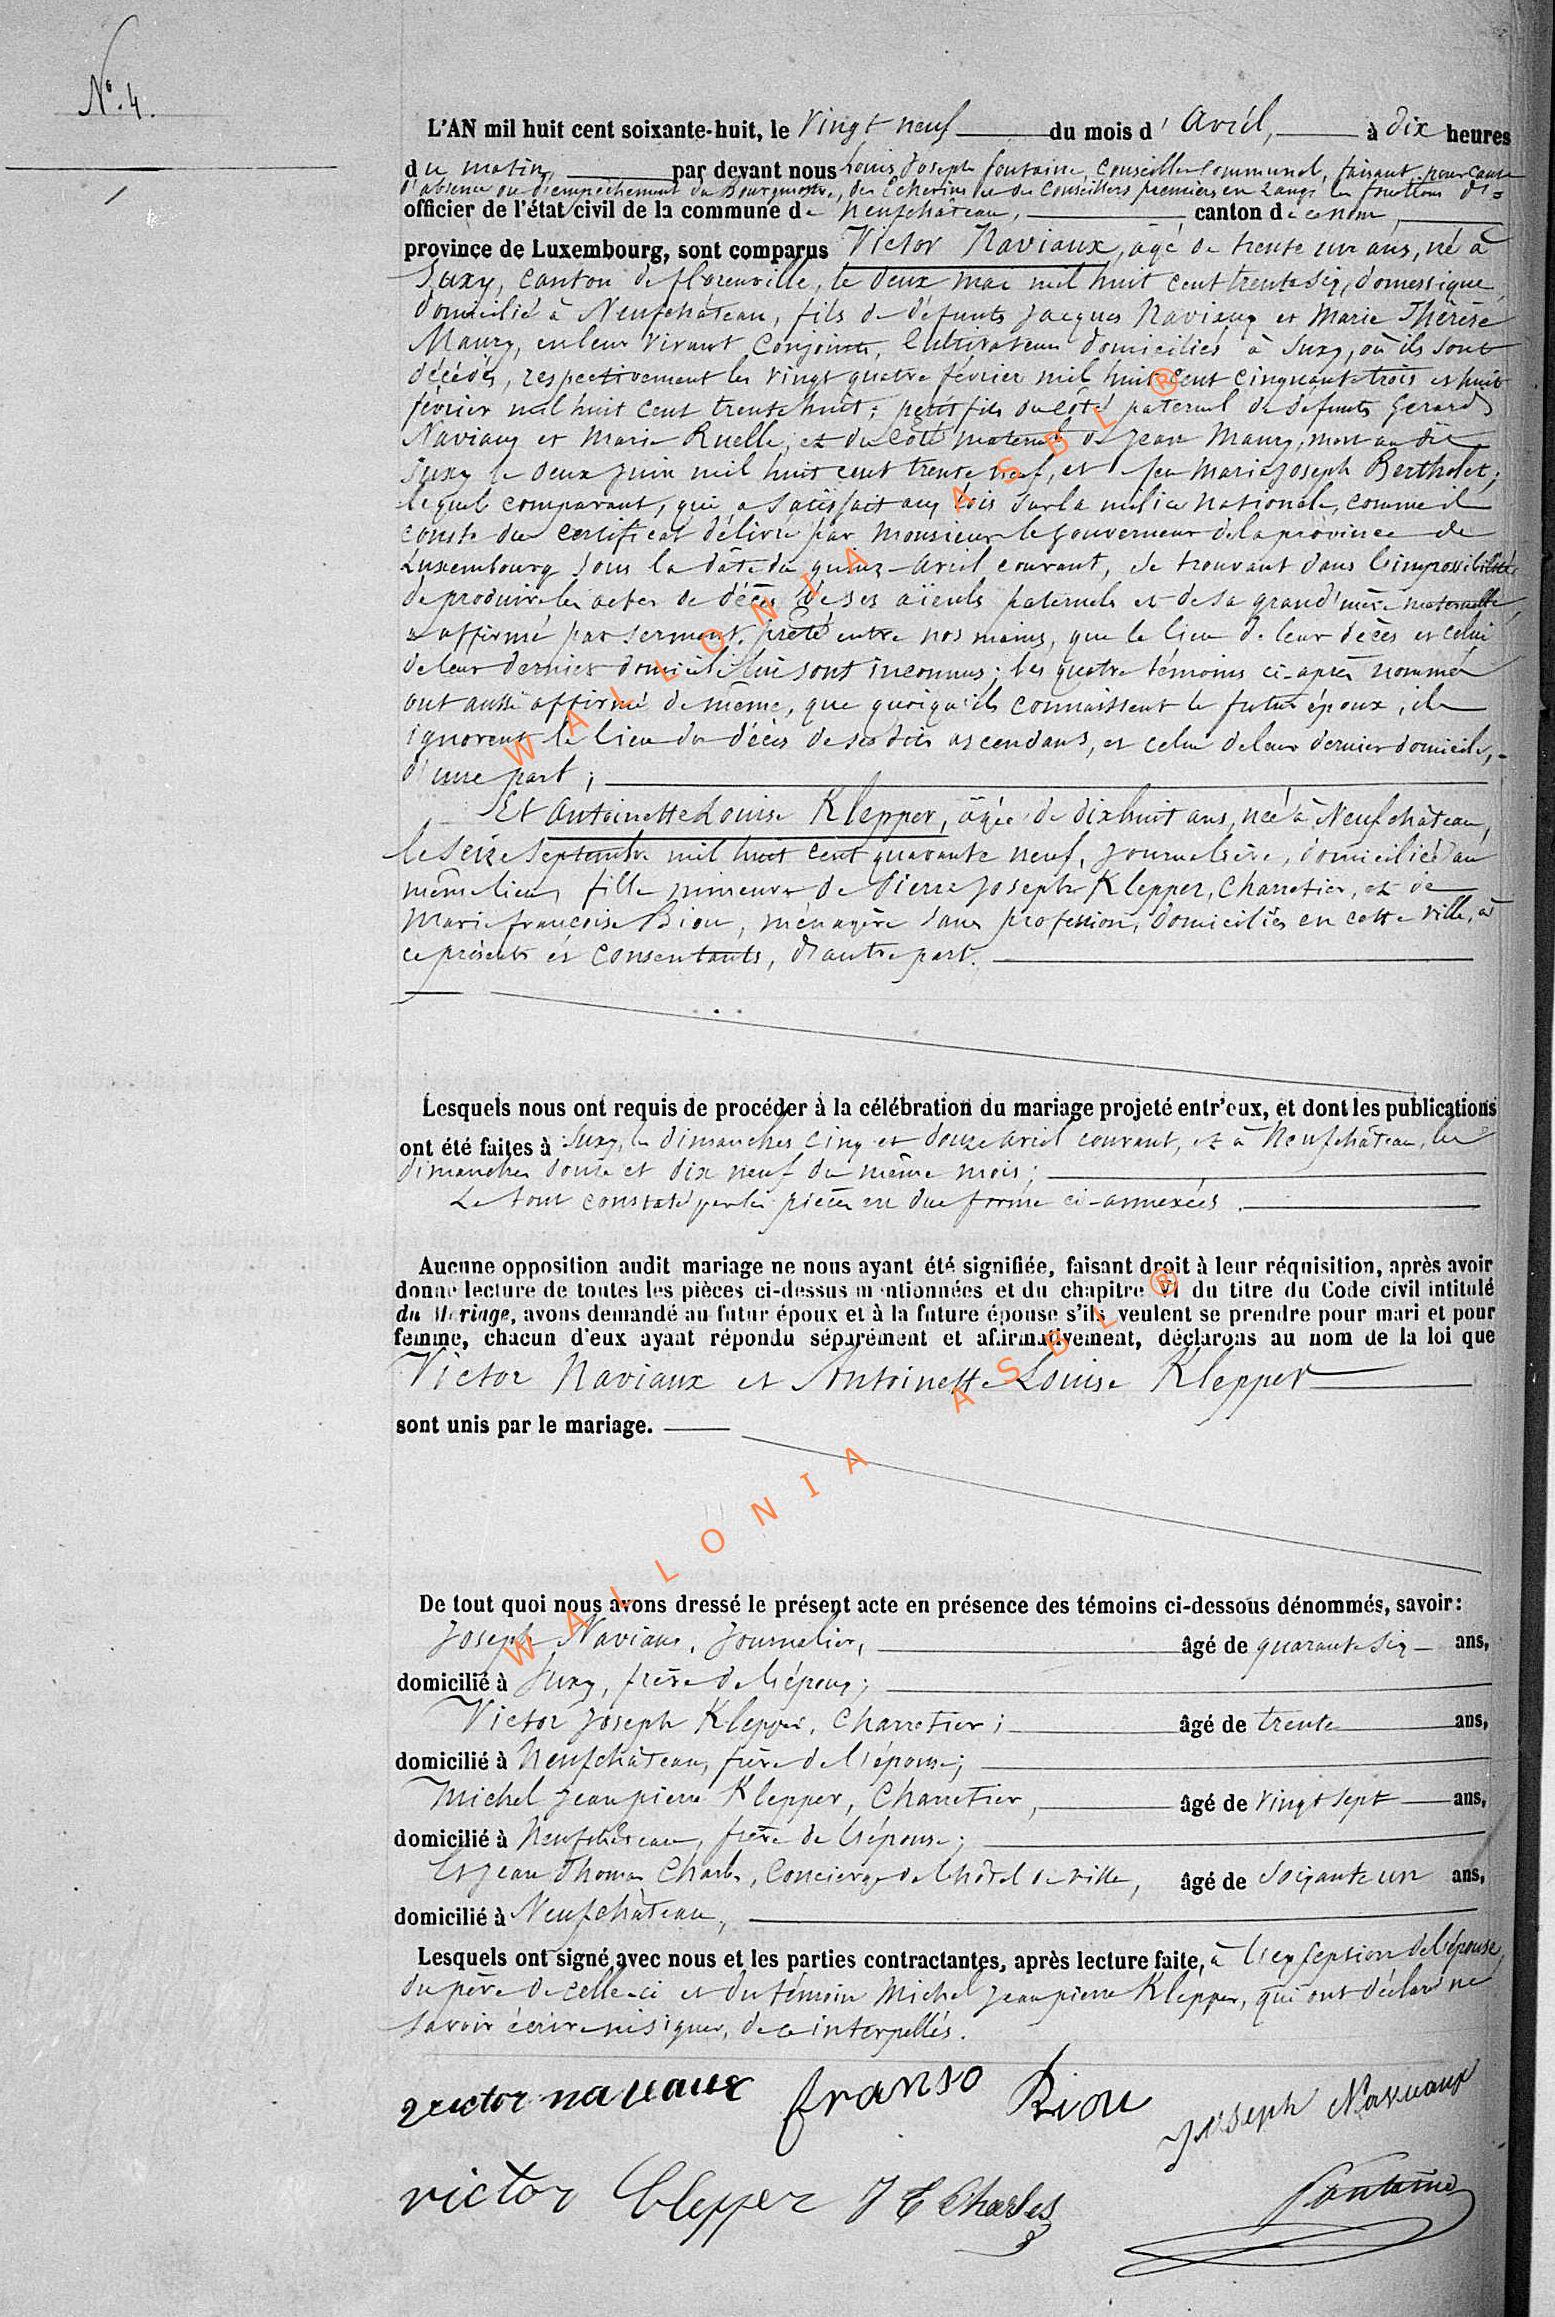 N° 4.
L'AN mil huit cent soixante-huit, le vingt neuf du mois d' avril, à dix heures
du matin, par devant nous Louis Joseph Fontaine, Conseiller Communal, faisant pour cause
d'absence ou d'empêchement du Bourgmestre, des Echevins et des Conseillers premiers en rangs les fonctions d'=
officier de l'état civil de la commune de Neufchâteau, canton de ce nom,
province de Luxembourg, sont comparus Victor Naviaux, âgé de trente un ans, né à
Suxy, canton de florenville, le deux mai mil huit cent trente six, domestique,
domicilié à Neufchâteau, fils de défunts Jacques Naviaux et Marie Thérèse
Maury, en leur vivant Conjoints, Cultivateurs domiciliés à Suxy, où ils sont
décédés, respectivement les vingt quatre février mil huit cent cinquante trois et huit
février mil huit cent trente huit; petit fils du côté paternel de défunts Gerard
Naviaux et Marie Ruelle, et du côté maternel de Jean Maury, mort au dit
Suxy le deux juin mil huit cent trente neuf, et feu Marie Joseph Bertholet;
lequel comparant, qui a satisfait aux lois sur la milice nationale, comme il
conste du certificat délivré par Monsieur le Gouverneur de la province de
Luxembourg sous la date du quinze avril courant, se trouvant dans l'impossibilité
de produire les actes de décès de ses aïeuls paternels et de sa grand'mère maternelle,
a affirmé par serment prêté entre nos mains, que le lieu de leur décès et celui
de leur dernier domicile lui sont inconnus; les quatre témoins ci-après nommés
ont aussi affirmé de même, que quoiqu'ils connaissent le futur époux, ils
ignorent le lieu du décès de ses dits ascendans, et celui de leur dernier domicile,
d'une part;
Et Antoinette Louise Klepper, âgée de dix huit ans, née à Neufchâteau,
le seize Septembre mil huit cent quarante neuf, Journalière, domiciliée au
même lieu, fille mineure de Pierre Joseph Klepper, Charretier, et de
Marie françoise Biou, ménagère sans profession, domiciliés en cette ville, à
ce présents et consentants, d'autre part.
Lesquels nous ont requis de procéder à la célébration du mariage projeté entr'eux, et dont les publications
ont été faites à Suxy, les dimanches cinq et douze avril courant, et à Neufchâteau, les
dimanches douze et dix neuf du même mois;
Le tout constaté par les pièces en due forme ci-annexées.
Aucune opposition audit mariage ne nous ayant été signifiée, faisant droit à leur réquisition, après avoir
donné lecture de toutes les pièces ci-dessus mentionnées et du chapitre VI du titre du Code civil intitulé
du Mariage, avons demandé au futur époux et à la future épouse s'ils veulent se prendre pour mari et pour
femme, chacun d'eux ayant répondu séparément et affirmativement, déclarons au nom de la loi que
Victor Naviaux et Antoinette Louise Klepper
sont unis par le mariage.
De tout quoi nous avons dressé le présent acte en présence des témoins ci-dessous dénommés, savoir:
Joseph Naviaux, Journalier, âgé de quarante six ans,
domicilié à Suxy, frère de l'époux;
Victor Joseph Klepper, Charretier; âgé de trente ans,
domicilié à Neufchâteau, frère de l'épouse;
Michel Jean pierre Klepper, Charretier, âgé de vingt sept ans,
domicilié à Neufchâteau, frère de l'épouse;
Et Jean Thomas Charles, Concierge de l'hôtel de ville, âgé de soixante un ans,
domicilié à Neufchâteau,
Lesquels ont signé avec nous et les parties contractantes, après lecture faite, à l'exception de l'épouse,
du père de celle-ci et du témoin Michel Jean pierre Klepper, qui ont déclaré ne
savoir écrire ni signer, de ce interpellés.
victor naviaux franso Biou Joseph Naviaux
victor Clepper J T Charles Fontaine
WALLONIA ASBL ®
WALLONIA ASBL ®